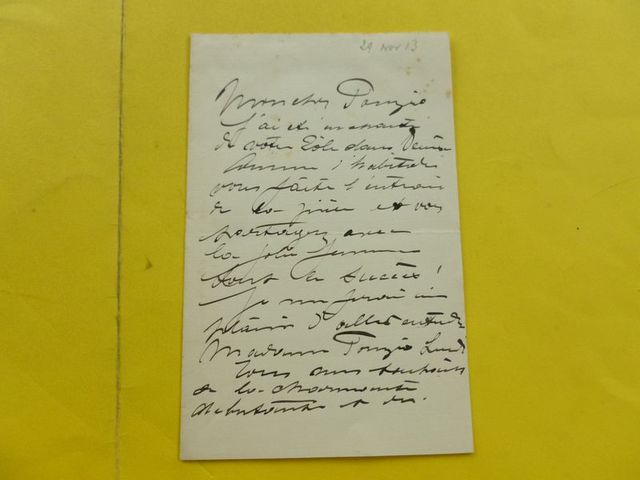 29 nov 13
Mon cher Ponzio
J'ai été
de votre rôle dans
Comme d'habitude
vous faites
de la pièce et vous
partagez avec
la jolie femme
tout le succès!
Je me ferai un
plaisir d'aller entendre
Madame Ponzio Lundi
Tous mes souhaits
à la charmante
débutante et